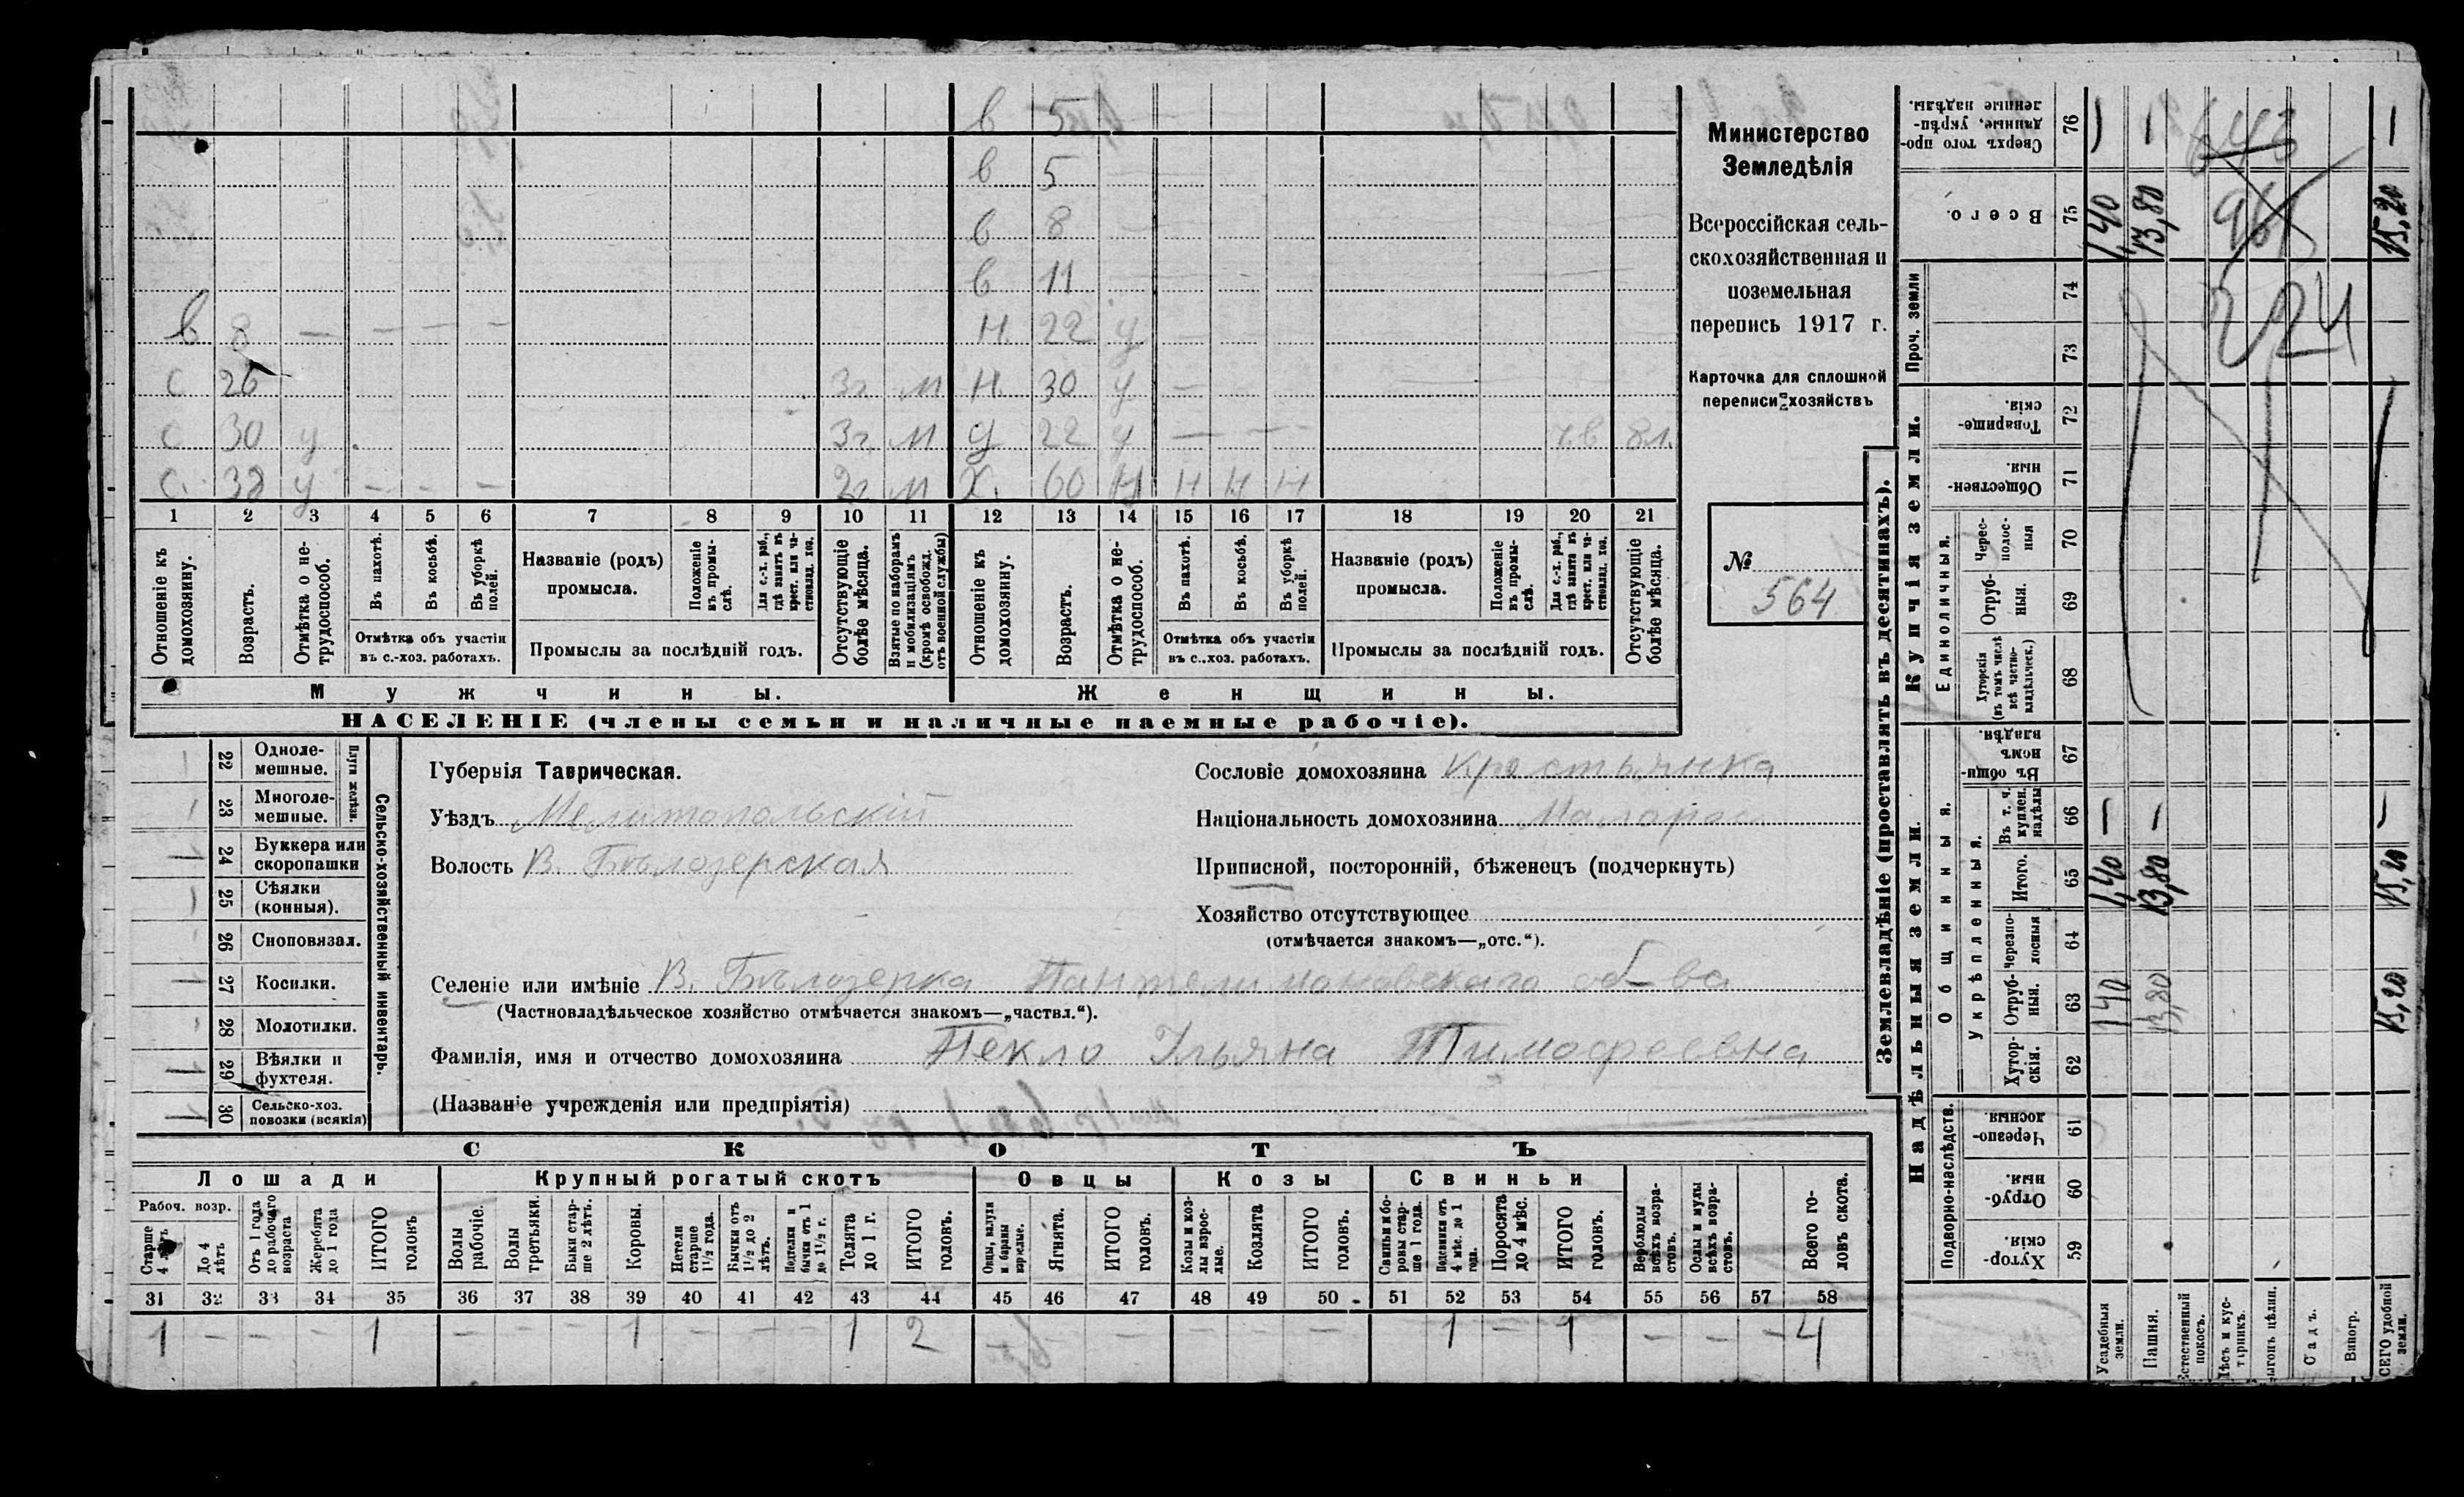 в 5
в 5
в 8
в 11
в 8 — — — — Н. 22 у —
с 26 3г м Н. 30 у —
с 30 у 3г м д 22 у — — —
с. 38 у — — — 2г м Х. 60 Н Н Н Н
1 2 3 4 5 6 7 8 9 10 11 12 13 14 15 16 17 18 19 20 21
Отношеніе къ домохозяину.
Возрастъ.
Отмѣтка о нетрудоспособ.
Въ пахотѣ.
Въ косьбѣ.
Въ уборкѣ полей.
Отмѣтка объ участіи въ с.-хоз. работахъ.
Названіе (родъ) промысла.
Положеніе въ промыслѣ.
Для с.-х. раб., гдѣ занятъ въ крест. или частновлад. хоз.
Промыслы за послѣдній годъ.
Отсутствующіе болѣе мѣсяца.
Взятые по наборамъ и мобилизаціямъ (кромѣ освобожд. отъ военной службы)
Отношеніе къ домохозяину.
Возрастъ.
Отмѣтка о нетрудоспособ.
Въ пахотѣ.
Въ косьбѣ.
Въ уборкѣ полей.
Отмѣтка объ участіи въ с..хоз. работахъ.
Названіе (родъ) промысла.
Положеніе въ промыслѣ.
Для с.-х. раб., гдѣ занятъ въ крест. или частновлад. хоз.
Промыслы за послѣдній годъ.
Отсутствующіе болѣе мѣсяца.
Мужчины.
Женщины.
НАСЕЛЕНІЕ (члены семьи и наличные наемные рабочіе).
Министерство
Земледѣлія
Всероссійская сель-
скохозяйственная и
поземельная
перепись 1917 г.
Карточка для сплошной
переписи хозяйствъ
№
564
22 Одноле-мешные.
23 Многоле-мешные.
Плуги желѣзн.
24 Буккера или скоропашки
25 Сѣялки (конныя).
26 Сноповязал.
27 Косилки.
28 Молотилки.
29 Вѣялки и фухтеля.
30 Сельско-хоз. повозки (всякія)
Сельско-хозяйственный инвентарь.
Губернія Таврическая.
Уѣздъ Мелитопольскій
Волость В. Бѣлозерская
Сословіе домохозяина Крестьянка
Національность домохозяина Малорос
Приписной, посторонній, бѣженецъ (подчеркнуть)
Хозяйство отсутствующее
(отмѣчается знакомъ—„отс.“).
Селеніе или имѣніе В. Бѣлозерка Пантелимоновскаго об-ва
(Частновладѣльческое хозяйство отмѣчается знакомъ—„частвл.“).
Фамилія, имя и отчество домохозяина Пекло Ульяна Тимофеевна
(Названіе учрежденія или предпріятія)
СКОТЪ
Лошади
Крупный рогатый скотъ
Овцы
Козы
Свиньи
Рабоч. возр.
Старше 4 лѣтъ
До 4 лѣтъ
Отъ 1 года до рабочаго возраста
Жеребята до 1 года
ИТОГО головъ
Волы рабочіе.
Волы третьяки.
Быки старше 2 лѣтъ.
Коровы.
Нетели старше 1½ года.
Бычки отъ 1½ до 2 лѣтъ.
Подтелки и бычки отъ 1 до 1½ г.
Телята до 1 г.
ИТОГО головъ.
Овцы, валухи и бараны взрослые.
Ягнята.
ИТОГО головъ.
Козы и козлы взрослые.
Козлята
ИТОГО головъ.
Свиньи и боровы старше 1 года.
Подсвинки отъ 4 мѣс. до 1 года.
Поросята до 4 мѣс.
ИТОГО головъ.
Верблюды всѣхъ возрастовъ.
Ослы и мулы всѣхъ возрастовъ.
Всего головъ скота.
31 32 33 34 35 36 37 38 39 40 41 42 43 44 45 46 47 48 49 50 51 52 53 54 55 56 57 58
1 — — — 1 — — — 1 — — — 1 2 — — — — — 1 — 1 — — — 4
Землевладѣніе (проставлять въ десятинахъ).
Надѣльныя земли.
Купчія земли.
Проч. земли
Подворно-наслѣдств.
Общинныя.
Укрѣпленныя.
Единоличныя.
Хутор-скія. 59
Отруб-ныя. 60
Черезпо-лосныя. 61
Хутор-скія. 62
Отруб-ныя. 63
Черезпо-лосныя 64
Итого. 65
Въ т. ч. куплен. надѣлы 66
Въ общи-номъ владѣн. 67
Хуторскія (въ томъ числѣ всѣ частно-владѣльческ.) 68
Отруб-ныя. 69
Черес-полос-ныя 70
Обществен-ныя. 71
Товарище-скія. 72
73
74
Всего. 75
Сверхъ того про-данные, укрѣп-ленные надѣлы. 76
Усадебныя земли. 1,40 1,40 — 1,40 —
Пашня. 13,80 13,80 — 13,80 —
Естественный покосъ.
Лѣсъ и кустарникъ.
Выгонъ цѣлин.
Садъ.
Виногр.
ВСЕГО удобной земли. 15,20 15,20 — 15,20 —
643
224